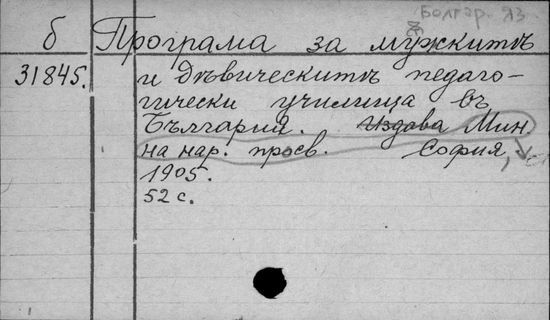 Болгар. яз
б Програма за мѫжкитѣ
31845. и дѣвическитѣ педаго-
гически училища въ
България. Издава Мин
на нар. просв. София,
1905.
52 с.